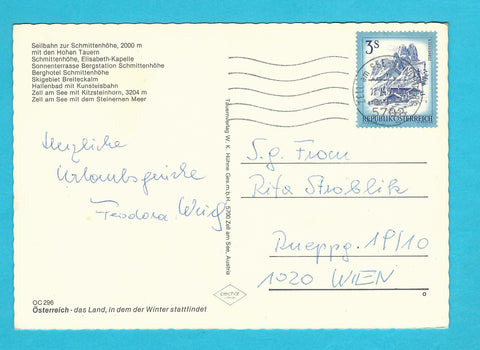 Seilbahn zur Schmittenhöhe, 2000 m
mit den Hohen Tauern
Schmittenhöhe, Elisabeth-Kapelle
Sonnenterrasse Bergstation Schmittenhöhe
Berghotel Schmittenhöhe
Skigebiet Breiteckalm
Hallenbad mit Kunsteisbahn
Zell am See mit Kitzsteinhorn, 3204 m
Zell am See mit dem Steinernen Meer
Herzliche
Urlaubsgrüße
Teodora
QC 296
Österreich - das Land, in dem der Winter stattfindet
Tauernverlag W. K. Höhne Ges.m.b.H., 5700 Zell am See, Austria
3 S
REPUBLIK ÖSTERREICH
ZELL am SEE
5702
S.g. Frau
Rita Stroblik
19/10
1020 WIEN